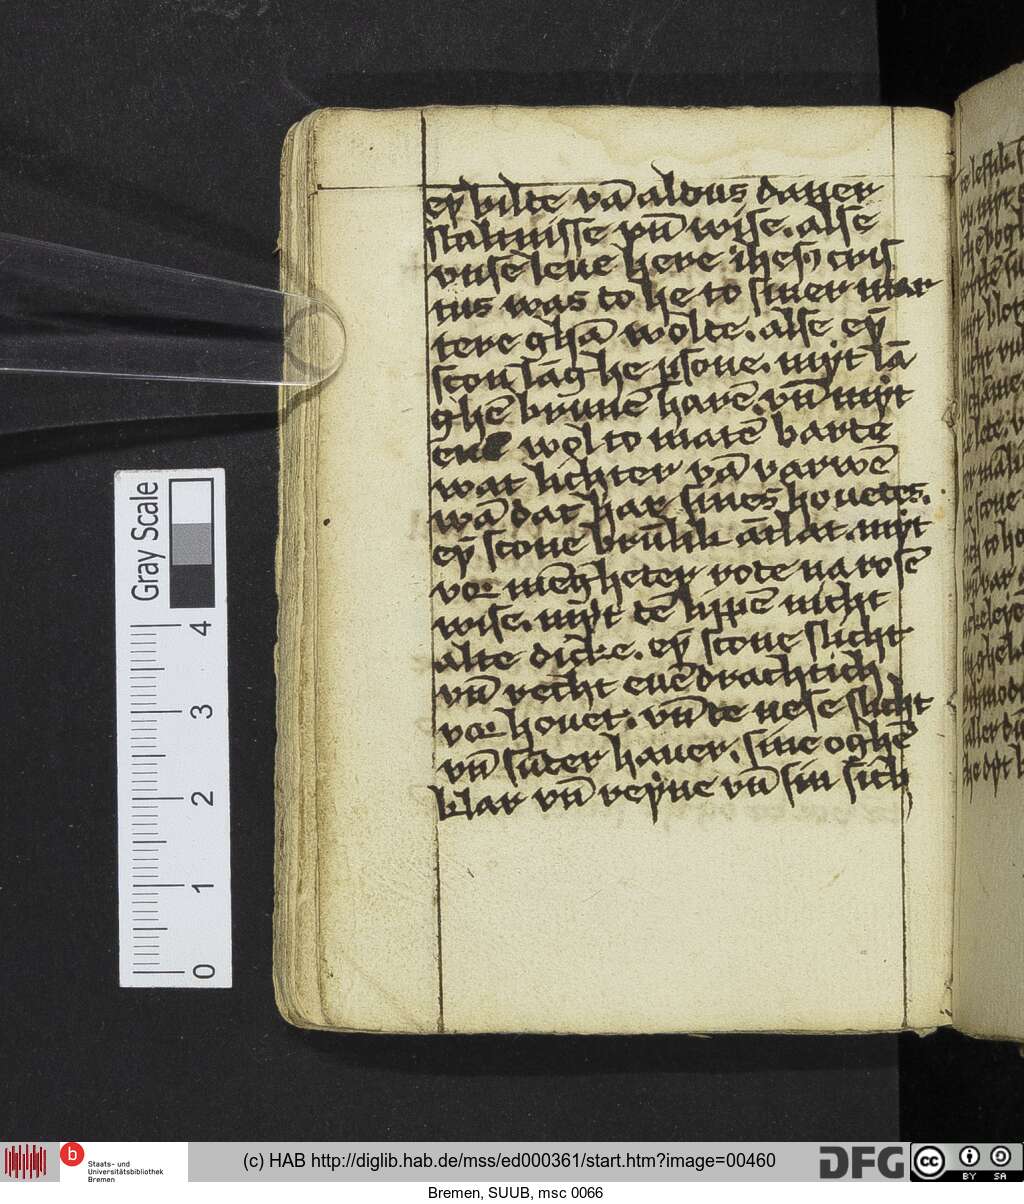 eyn bilde vā aldus daner
staltnisse vn̄ wise. alse
vnse leue here ihesꝰ cris
tus was do he to siner mar
tere ghā wolde. alse eyn̄
scon lāg he ꝑsone. myt lā
ghē brunē harē. vn̄ myt
wol to matē barde
wat lichter vā varwē
wā dat har sines houedes.
eyn̄ scone brulik ātlat. myt
vor mēgheder rode na rosē
wise. myt dē lippē nicht
alte dicke. eyn̄ scone slicht
vn̄ recht euē drachtich
vor houet. vn̄ de nese slicht
vn̄ sūder hauer. sine oghē
klar vn̄ reyne vn̄ sin sich
Gray Scale
4
3
2
1
0
Staats- und
Universitätsbibliothek
Bremen
(c) HAB http://diglib.hab.de/mss/ed000361/start.htm?image=00460
DFG
cc
BY SA
Bremen, SUUB, msc 0066